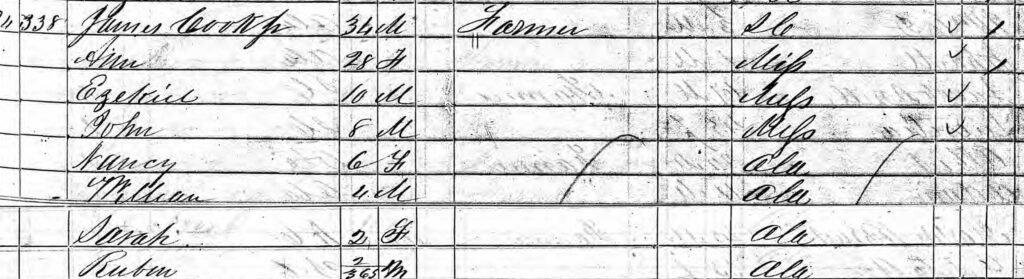 338 James Cook Jr 34 M Farmer Do ✓ 1
Ann 28 F Miss ✓ 1
Ezekiel 10 M Miss ✓
John 8 M Miss ✓
Nancy 6 F Ala
William 4 M Ala
Sarah 2 F Ala
Ruben 2/365 M Ala